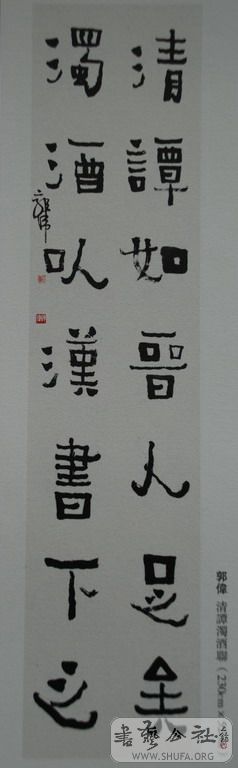 清譚如晉人足矣
濁酒以漢書下之
郭偉
郭偉 清譚濁酒聯（230cm×
書藝公社
WWW.SHUFA.ORG